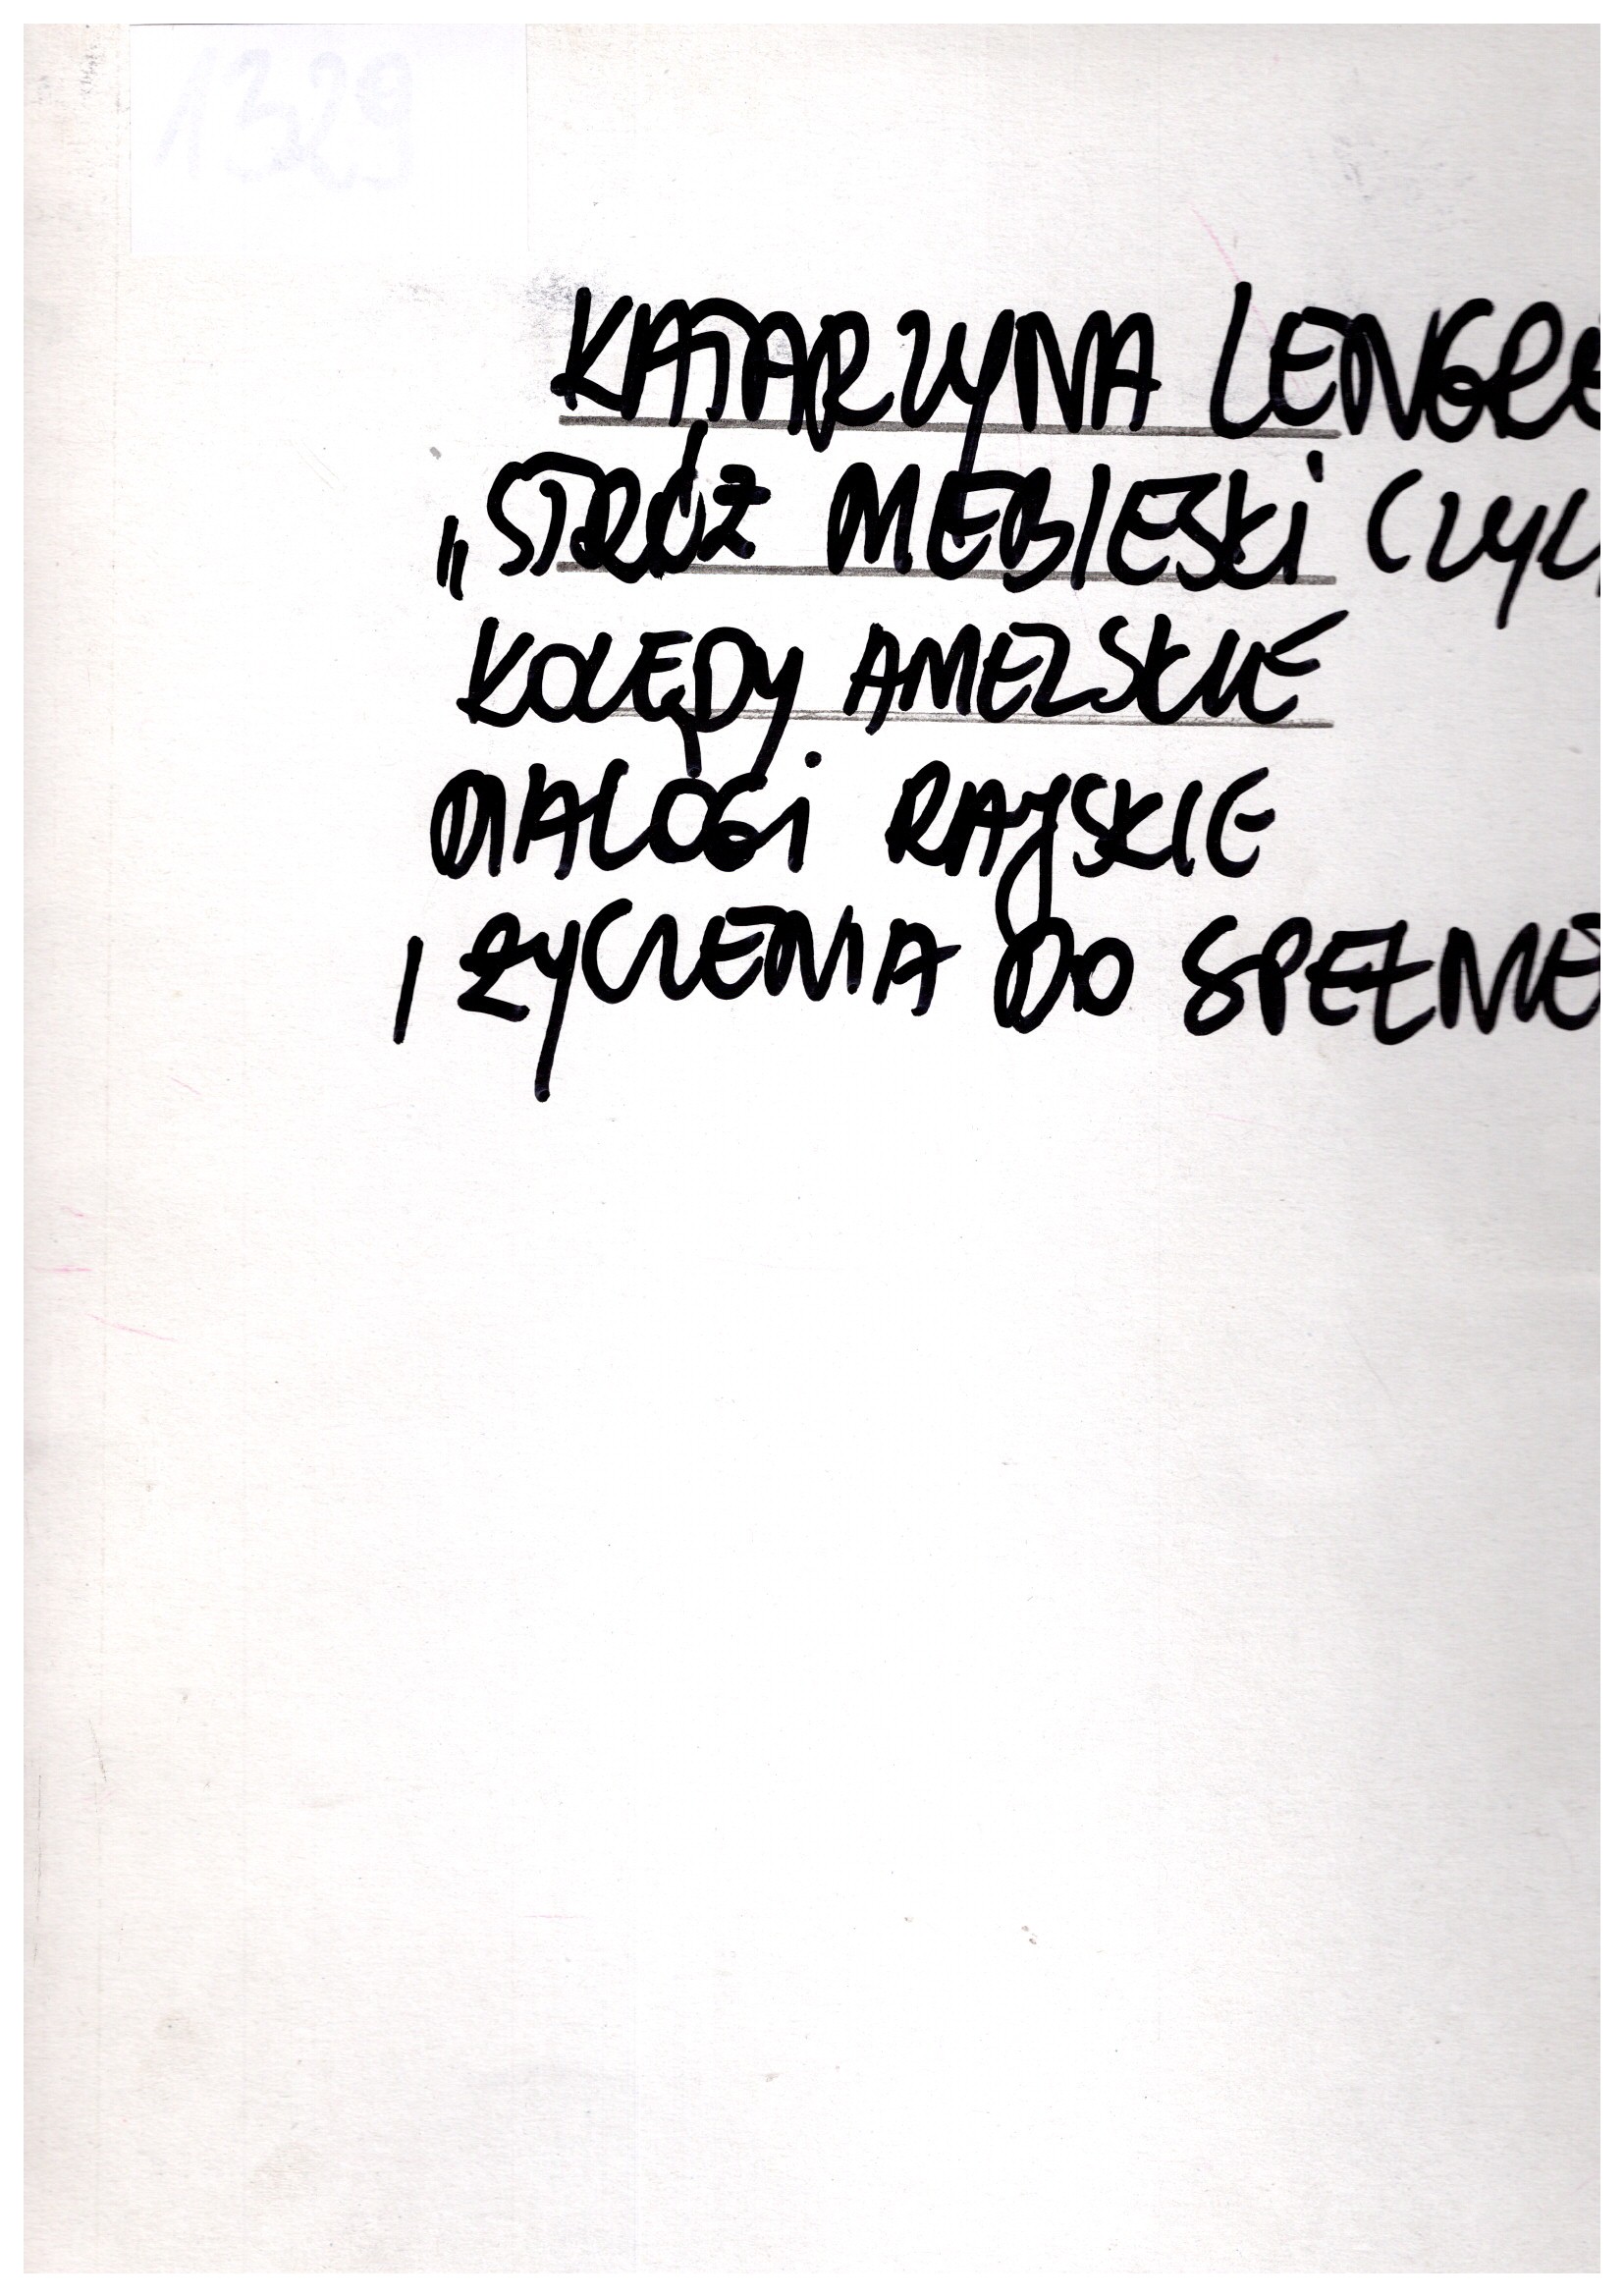 1329
KATARZYNA LENGRE
„STRÓŻ NIEBIESKI CZYLI
KOLĘDY ANIELSKIE
DIALOGI RAJSKIE
I ŻYCZENIA DO SPEŁNIE